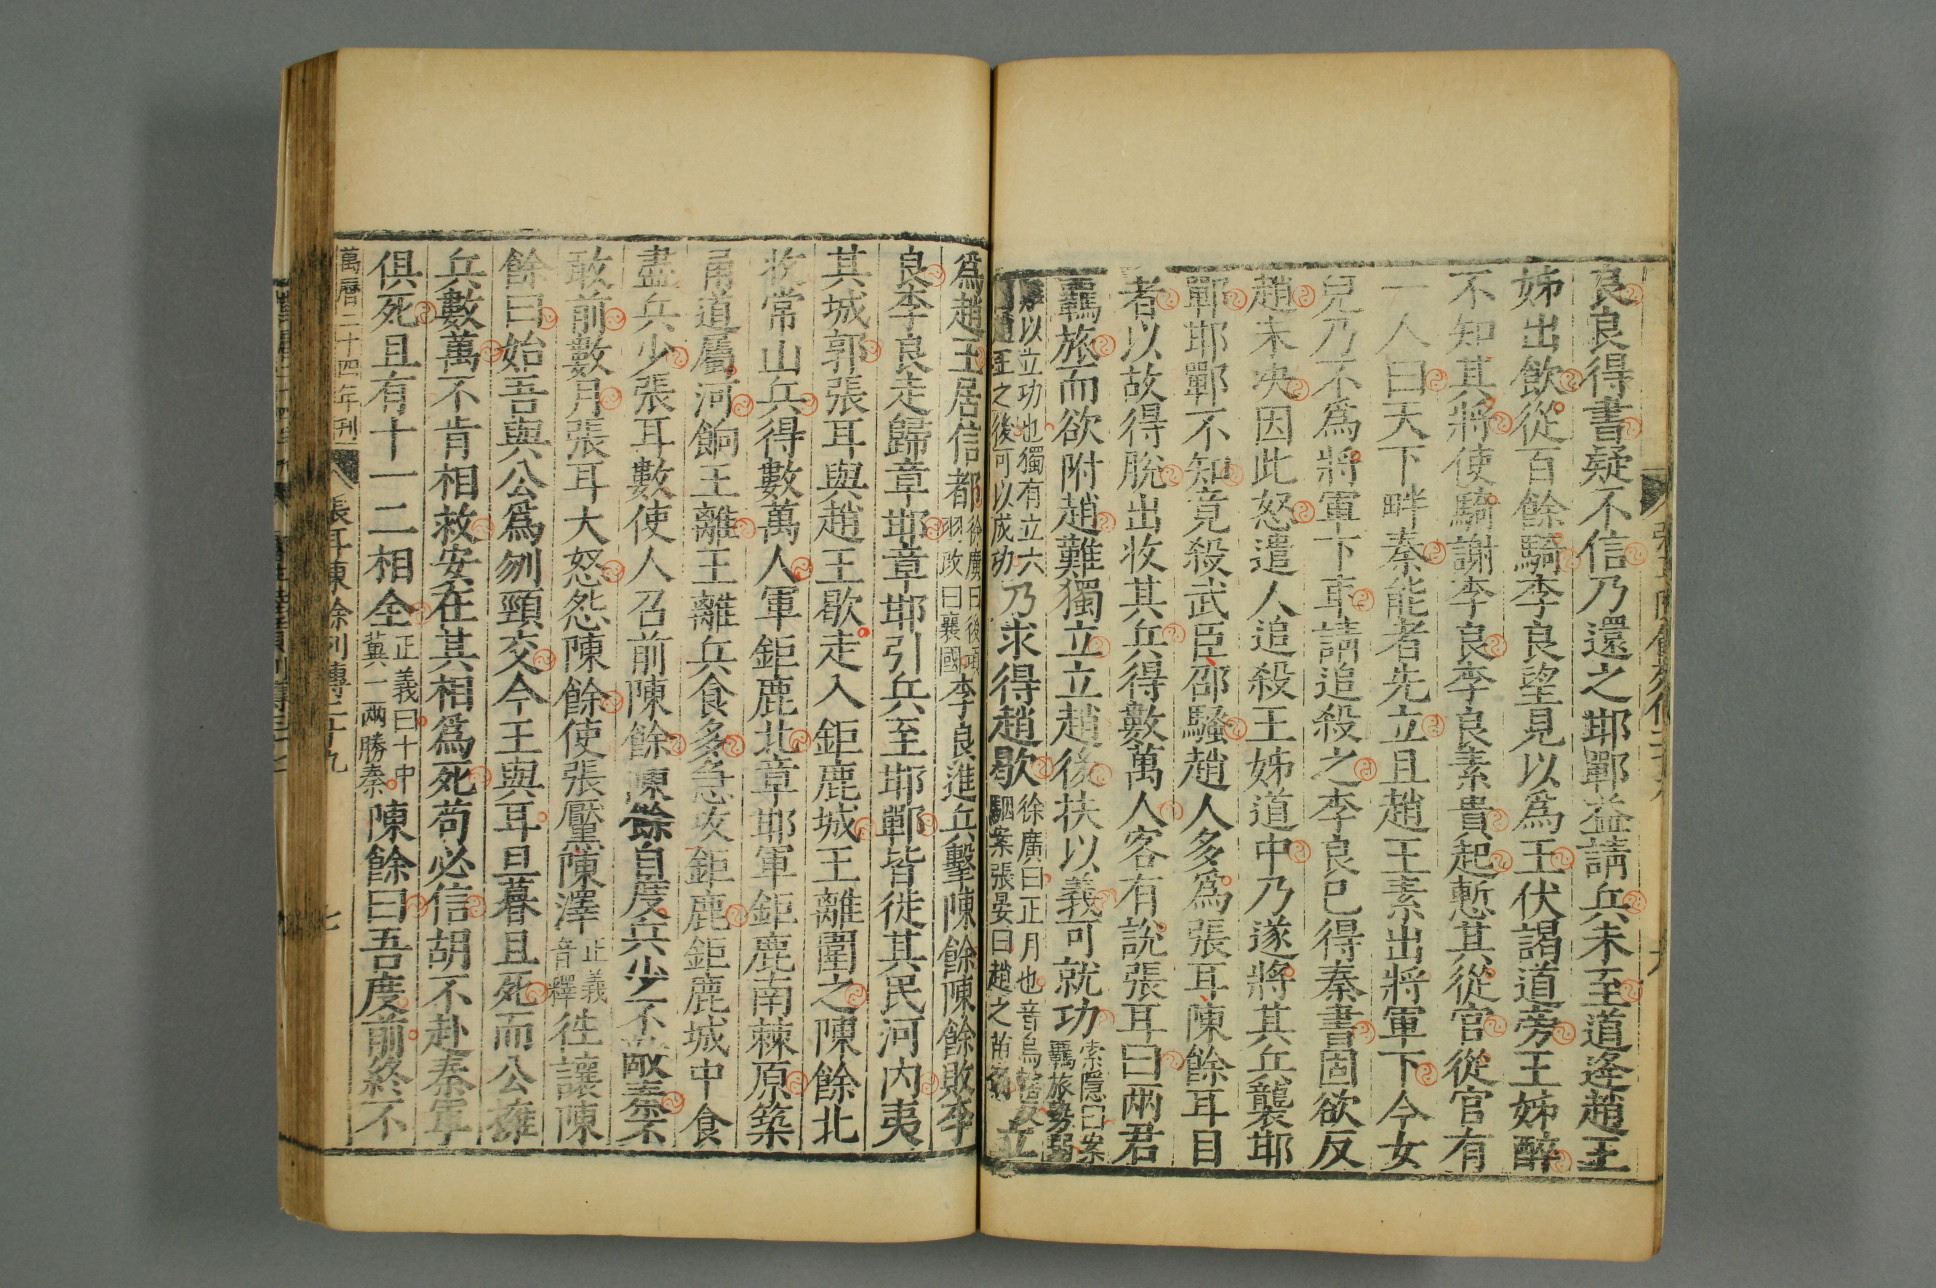 良良得書疑不信乃還之邯鄲益請兵未至道逢趙王
姊出飲從百餘騎李良望見以爲王伏謁道旁王姊醉
不知其將使騎謝李良李良素貴起慙其從官從官有
一人曰天下畔秦能者先立且趙王素出將軍下今女
兒乃不爲將軍下車請追殺之李良已得秦書固欲反
趙未决因此怒遣人追殺王姊道中乃遂將其兵襲邯
鄲邯鄲不知竟殺武臣邵騷趙人多爲張耳陳餘耳目
者以故得脫出收其兵得數萬人客有說張耳曰兩君
羈旅而欲附趙難獨立立趙後扶以義可就功索隱曰案羈旅勢弱
以立功也獨有立六國王之後可以成功乃求得趙歇徐廣曰正月也音烏轄反駰案張晏曰趙之苗裔立
爲趙王居信都徐廣曰後項羽改曰襄國李良進兵擊陳餘陳餘敗李
良李良走歸章邯章邯引兵至邯鄲皆徙其民河內夷
其城郭張耳與趙王歇走入鉅鹿城王離圍之陳餘北
收常山兵得數萬人軍鉅鹿北章邯軍鉅鹿南棘原築
甬道屬河餉王離王離兵食多急攻鉅鹿鉅鹿城中食
盡兵少張耳數使人召前陳餘陳餘自度兵少不敵秦不
敢前數月張耳大怒怨陳餘使張黶陳澤正義音釋徃讓陳
餘曰始吾與公爲刎頸交今王與耳旦暮且死而公擁
兵數萬不肯相救安在其相爲死苟必信胡不赴秦軍
俱死且有十一二相全正義曰十中冀一兩勝秦陳餘曰吾度前終不
萬曆二十四年刊 張耳陳餘列傳二十九 七